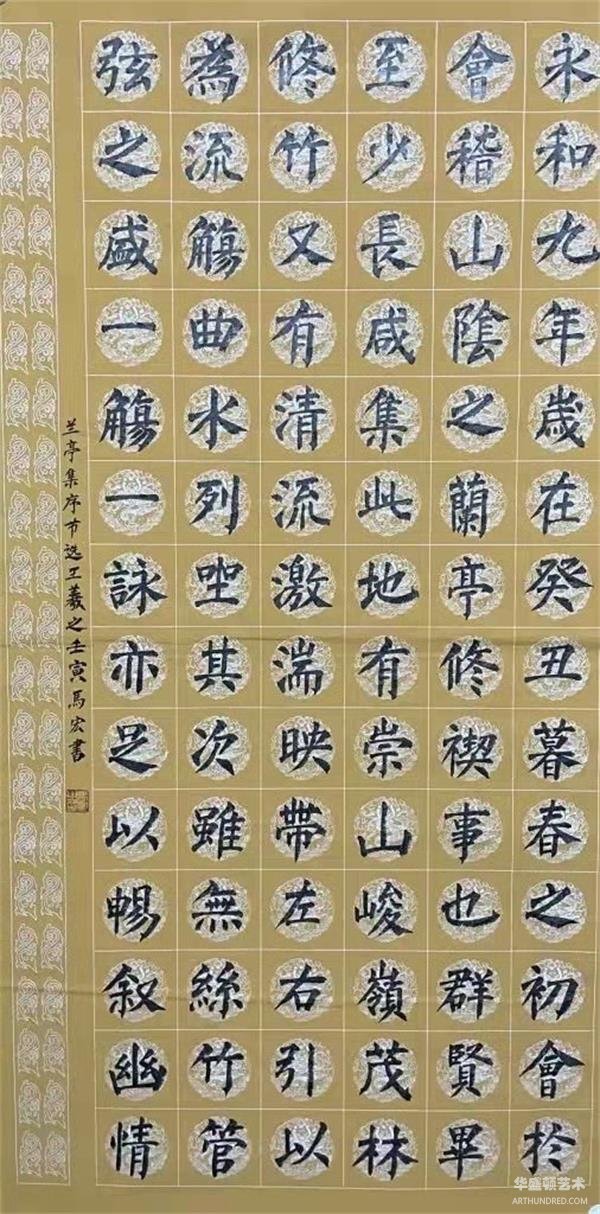 永和九年歲在癸丑暮春之初會於
會稽山陰之蘭亭修禊事也群賢畢
至少長咸集此地有崇山峻嶺茂林
修竹又有清流激湍映帶左右引以
為流觴曲水列坐其次雖無絲竹管
弦之盛一觴一詠亦足以暢叙幽情
兰亭集序节选王羲之壬寅馬宏書
华盛顿艺术
ARTHUNDRED.COM